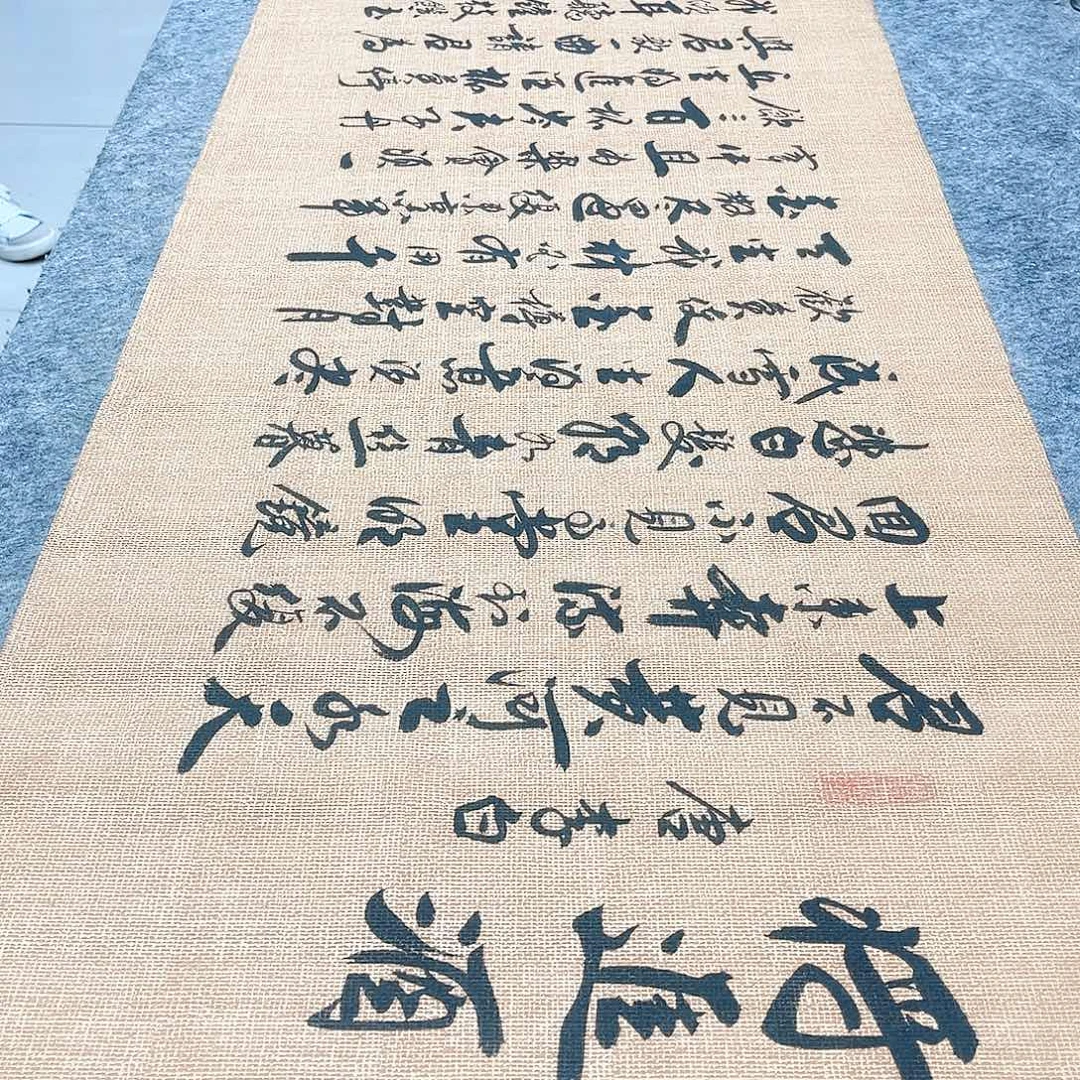 將進酒
唐李白
君不見黃河之水天
上来奔流到海不復
回君不見高堂明鏡
悲白髮朝如青絲暮
成雪人生得意須盡
歡莫使金樽空對月
天生我材必有用千
金散盡還復來烹羊
宰牛且為樂會須一
飲三百杯岑夫子丹
丘生將進酒杯莫停
與君歌一曲請君為
我傾耳聽鐘鼓饌玉